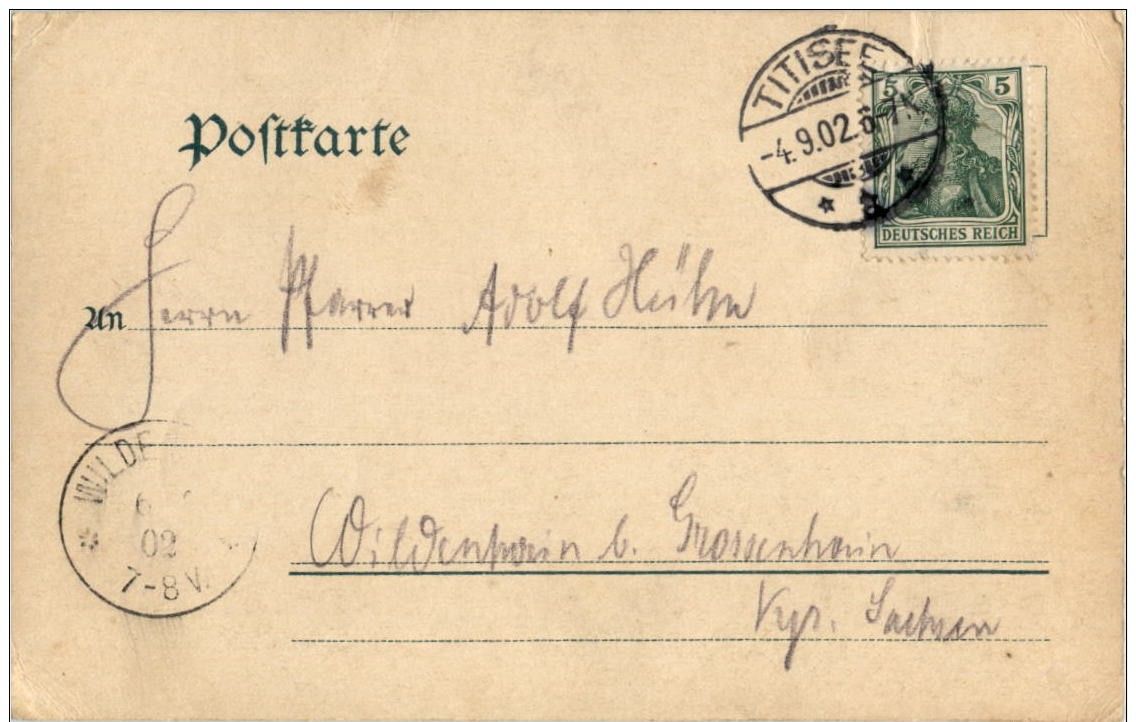 TITISEE
-4.9.02. 6-7
5 5
DEUTSCHES REICH
Postkarte
An Herrn Pfarrer Adolf Hühn
WILDE
6
02
7-8 V.
Wildenhain b. Grossenhain
Kgr. Sachsen